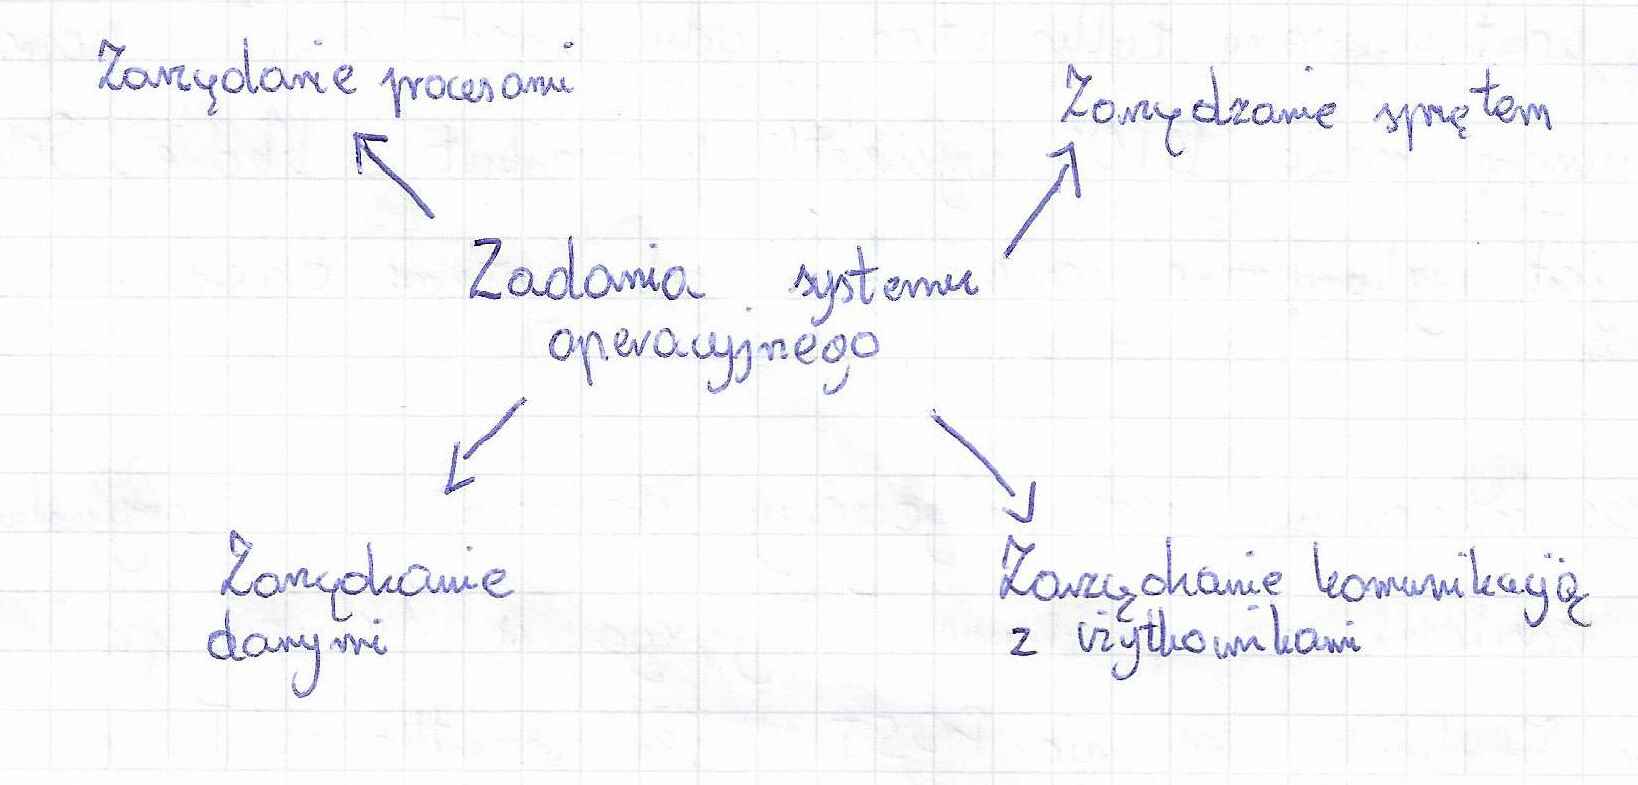 Zarzydanie procesami
Zarzydzanie sprzętem
Zadania systemu
operacyjnego
Zarządzanie
danymi
Zarządzanie komunikacją
z użytkownikami